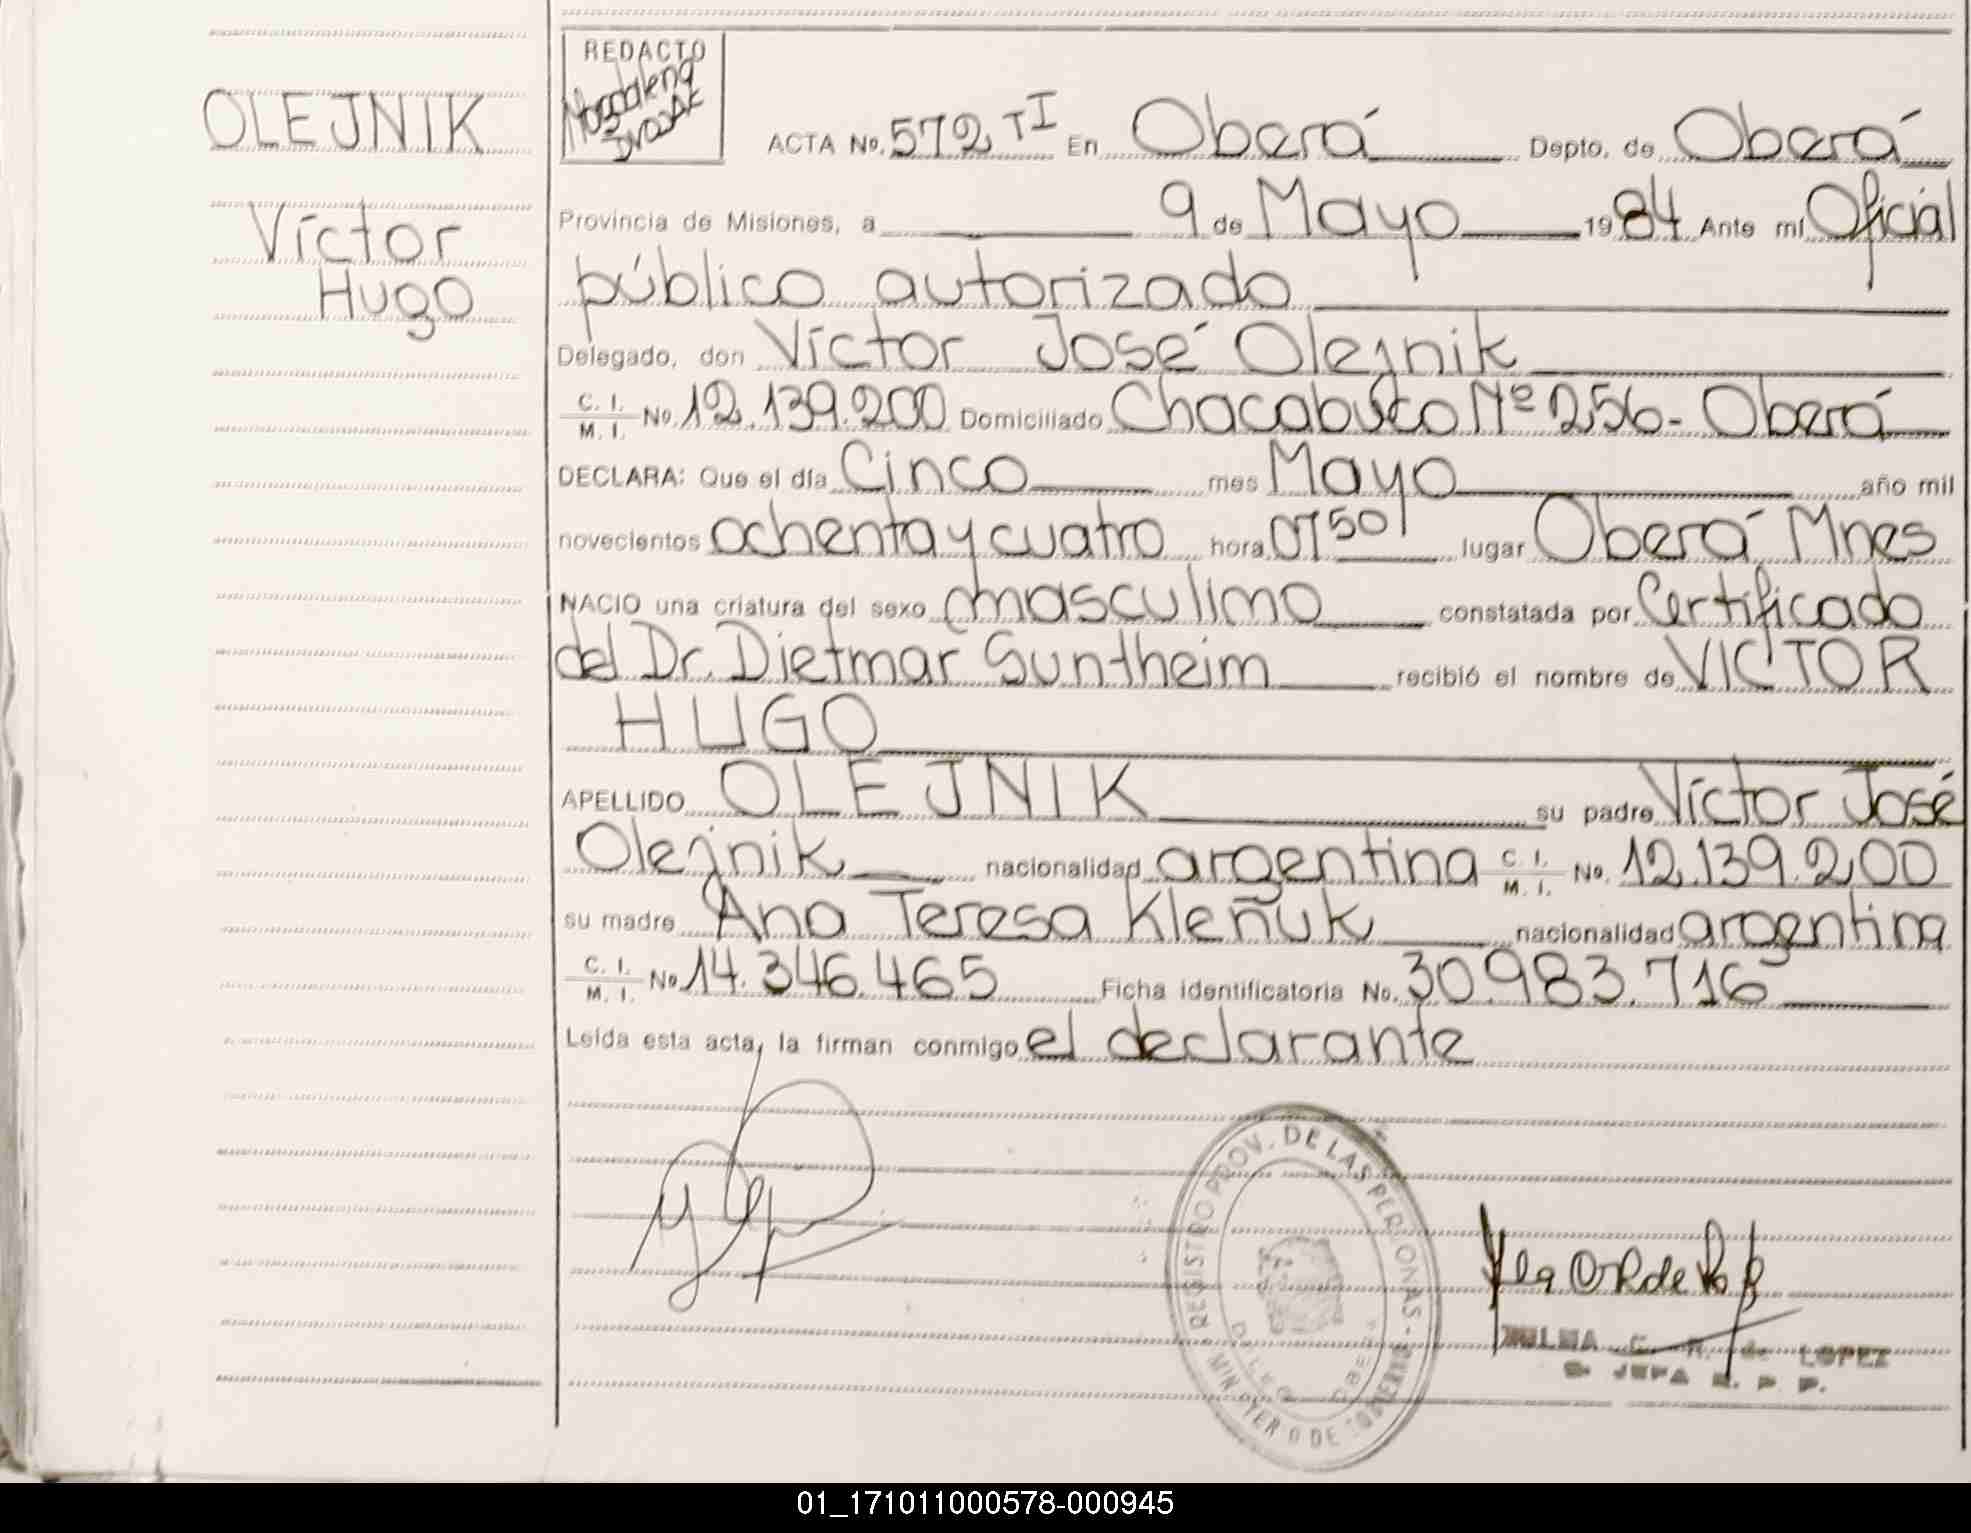 OLEJNIK
Víctor
Hugo
REDACTO
Magdalena
ACTA No. 572 TI En Oberá Depto. de Oberá
Provincia de Misiones, a 9 de Mayo 1984 Ante mí Oficial
público autorizado
Delegado, don Víctor José Olejnik
C. I. / M. I. No. 12.139.200 Domiciliado Chacabuco Nº 256- Oberá
DECLARA: Que el día Cinco mes Mayo año mil
novecientos ochenta y cuatro hora 07 50 lugar Oberá Mnes
NACIO una criatura del sexo masculino constatada por Certificado
del Dr. Dietmar Suntheim recibió el nombre de VICTOR
HUGO
APELLIDO OLEJNIK su padre Víctor José
Olejnik nacionalidad argentina C. I. / M. I. No. 12.139.200
su madre Ana Teresa Kleñuk nacionalidad argentina
C. I. / M. I. No. 14.346.465 Ficha identificatoria No. 30.983.716
Leída esta acta, la firman conmigo el declarante
REGISTRO PROV. DE LAS PERSONAS - MINISTERIO DE GOBIERNO
C. R. de LOPEZ
JEFA R. P. P.
01_171011000578-000945